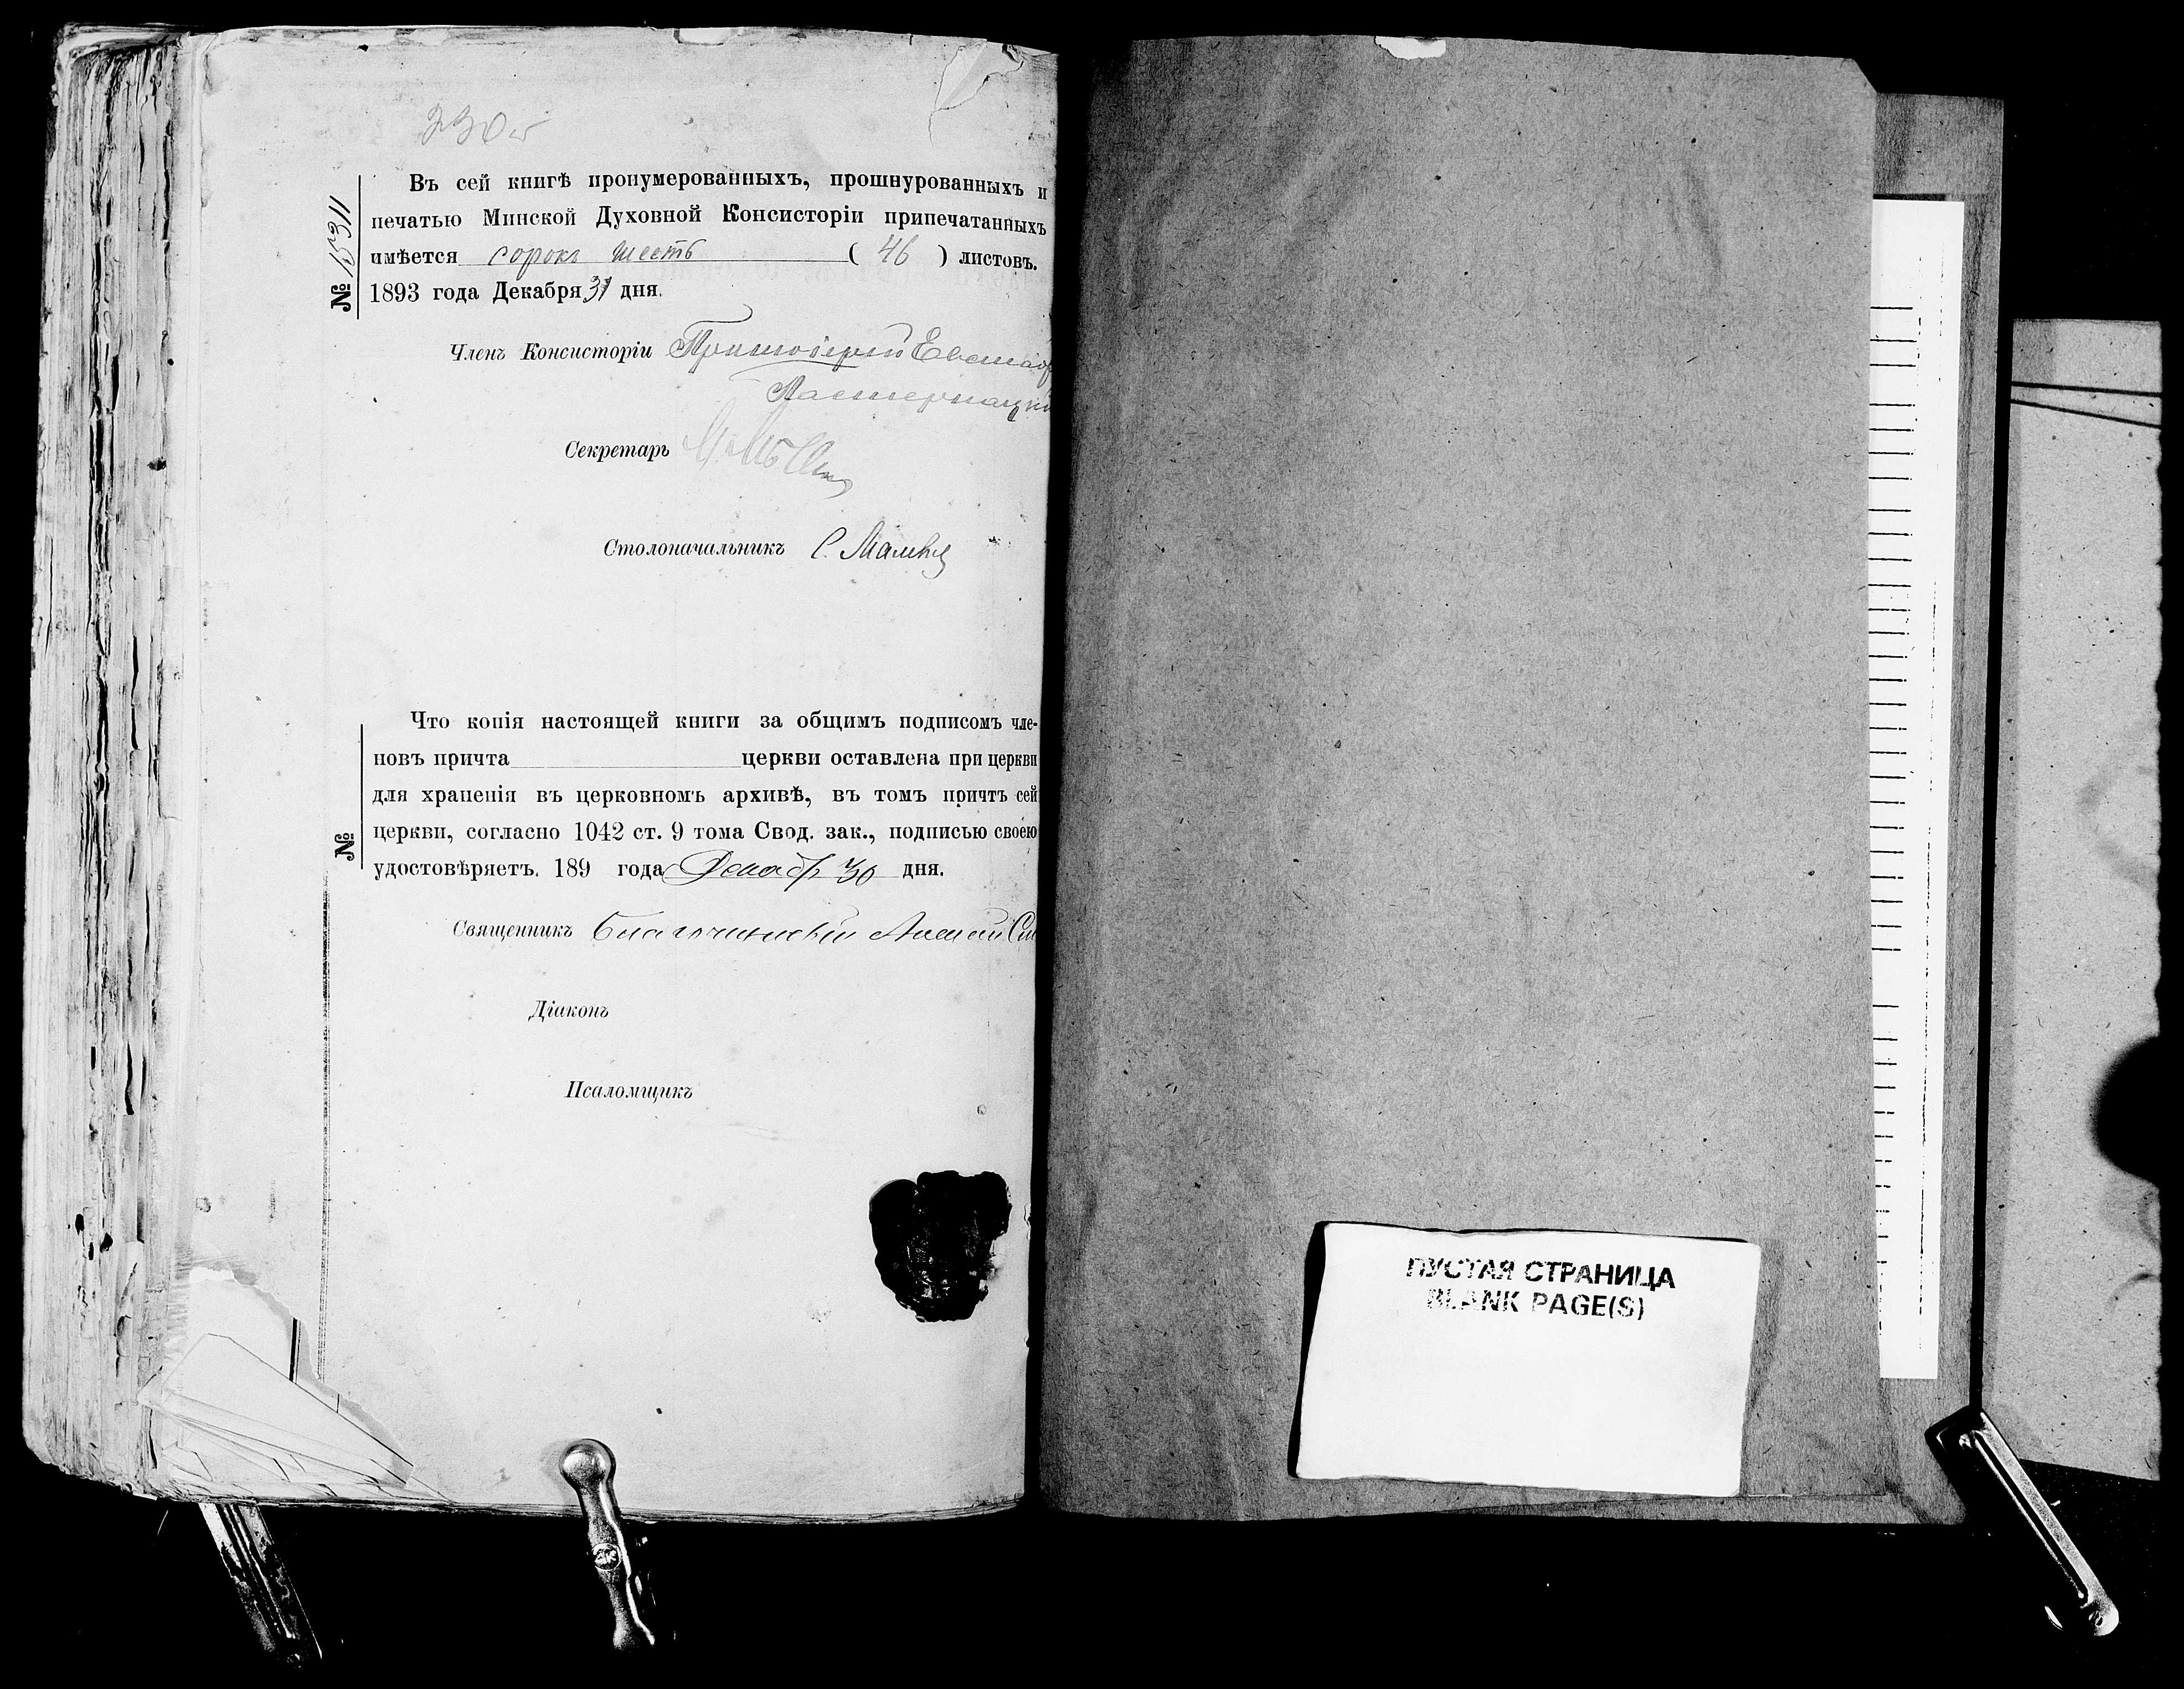 230 об
№ 15311
Въ сей книгѣ пронумерованныхъ, прошнурованныхъ и
печатью Минской Духовной Консисторіи припечатанныхъ
имѣется сорокъ шесть ( 46 ) листовъ.
1893 года Декабря 31 дня.
Членъ Консисторіи Протоіерей Евстаф
Пастернацкі
Секретарь
Столоначальникъ С.
№
Что копія настоящей книги за общимъ подписомъ чле-
новъ причта церкви оставлена при церкви
для храненія въ церковномъ архивѣ, въ томъ причтъ сей
церкви, согласно 1042 ст. 9 тома Свод. зак., подписью своею
удостовѣряетъ. 189 года Декабр 30 дня.
Священникъ
Діаконъ
Псаломщикъ
ПУСТАЯ СТРАНИЦА
BLANK PAGE(S)